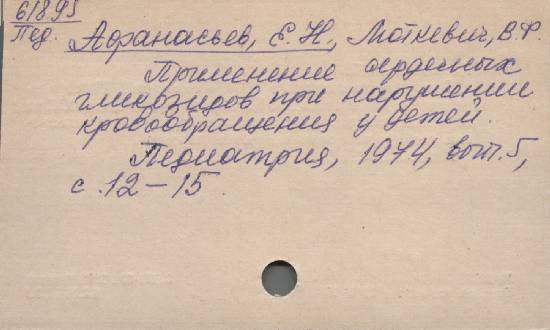 618.93
Пед. Афанасьев, Е. Н., Моткевич, В.Ф.
Применение сердечных
гликозидов при нарушении
кровообращения у детей.
Педиатрия, 1974, вып. 5,
с. 12-15.